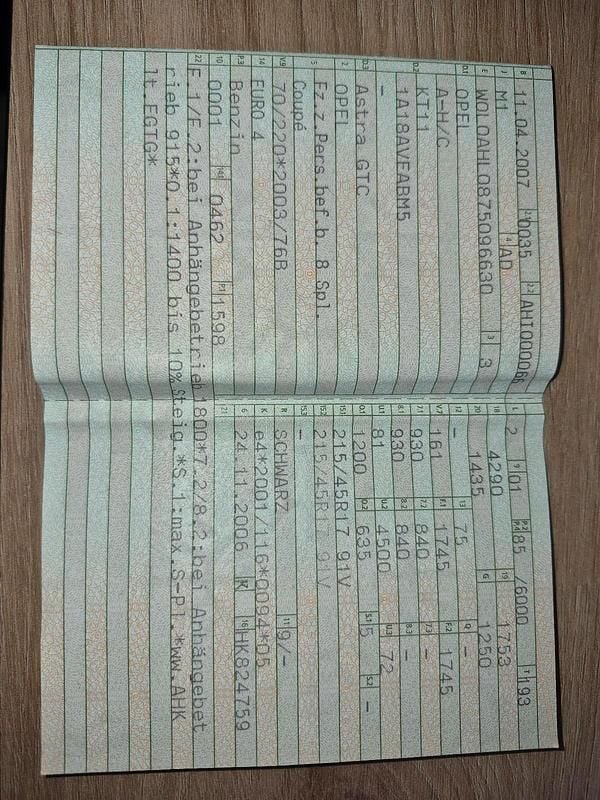 B 11.04.2007 2.1 0035 2.2 AHI000066
J M1 4 AD
E W0L0AHL0875096630 3 3
D.1 OPEL
A-H/C
D.2 KT11
1A18AVEABM5
-
D.3 Astra GTC
2 OPEL
5 Fz.z.Pers.bef.b. 8 Spl.
Coupé
V.9 70/220*2003/76B
14 EURO 4
P.3 Benzin
10 0001 14.1 0462 P.1 1598
L 2 9 01 P.2 P.4 85 /6000 T 193
18 4290 19 1753
20 1435 G 1250
12 - 13 75 Q -
V.7 161 F.1 1745 F.2 1745
7.1 930 7.2 840 7.3 -
8.1 930 8.2 840 8.3 -
U.1 81 U.2 4500 U.3 72
O.1 1200 O.2 635 S.1 5 S.2 -
15.1 215/45R17 91V
15.2 215/45R17 91V
15.3 -
R SCHWARZ 11 9/-
K e4*2001/116*0094*05
6 24.11.2006 17 K 16 HK824759
21
22 F.1/F.2:bei Anhängebetrieb1800*7.2/8.2:bei Anhängebet
rieb 915*O.1:1400 bis 10%Steig.*S.1:max.S-Pl.*ww.AHK
lt.EGTG*